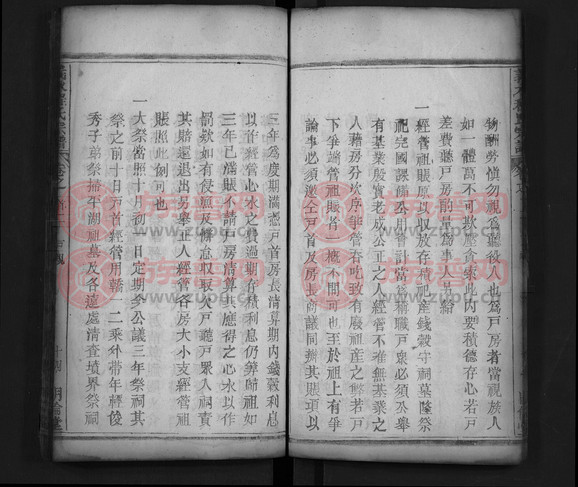 物酬劳慎勿視為戶後人也為戶房者當視族人
如一體萬不可欺壓貪索此內要積德存心若戶
差費聽戶房前早為事人品給
一經管祖賬原以收放存積祀產錢穀守祠墓隆祭
祀完國課備公用會計當為稱職戶眾必須公舉
有基業殷實老成公正之人經管不准無基業之
人藉房分次序爭管吞吃致有廢祖產之弊若戶
下爭端管祖賬者一概不問可也至於祖上有爭
論事必須邀仝戶首及房長商議同辦其賬項以
三年為度期滿憑戶首房長清算期內錢穀利息
以首經管心水之費過期存積利息仍歸祖如
三年已滿賬不請戶房清算其應得之心水以作
罰欵如有侵漁及懈怠收取入戶聽戶眾入祠責
其賠還退出另舉正人經管各房大小支經管祖
賬照此例可也
一大祭當照十月初一日定期參公議三年祭祠其
祭之前十日戶首經管用轎一二乘外帶年輕俊
秀子弟祭掃平湖祖墓及各遠處清查墳界祭祠